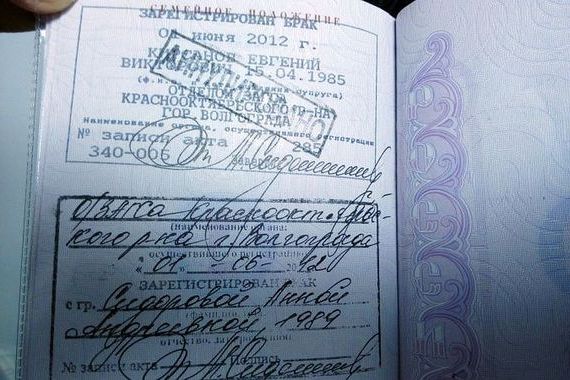 СЕМЕЙНОЕ ПОЛОЖЕНИЕ
ЗАРЕГИСТРИРОВАН БРАК
01 ИЮНЯ 2012 г.
ЕВГЕНИЙ
15.04.1985
ОТДЕЛОМ ЗАГСА
КРАСНООКТЯБРЬСКОГО Р-НА
ГОР. ВОЛГОГРАДА
Наименование органа, осуществившего регистрацию
№ записи акта 285
340-006
о/ЗАГСа Краснооктябрьс-
кого р-на г. Волгограда
(наименование органа,
осуществившего регистрацию)
"01" 06
ЗАРЕГИСТРИРОВАН БРАК
с гр. Сидоровой Анной
Андреевной, 1989
№ записи акта
Подпись